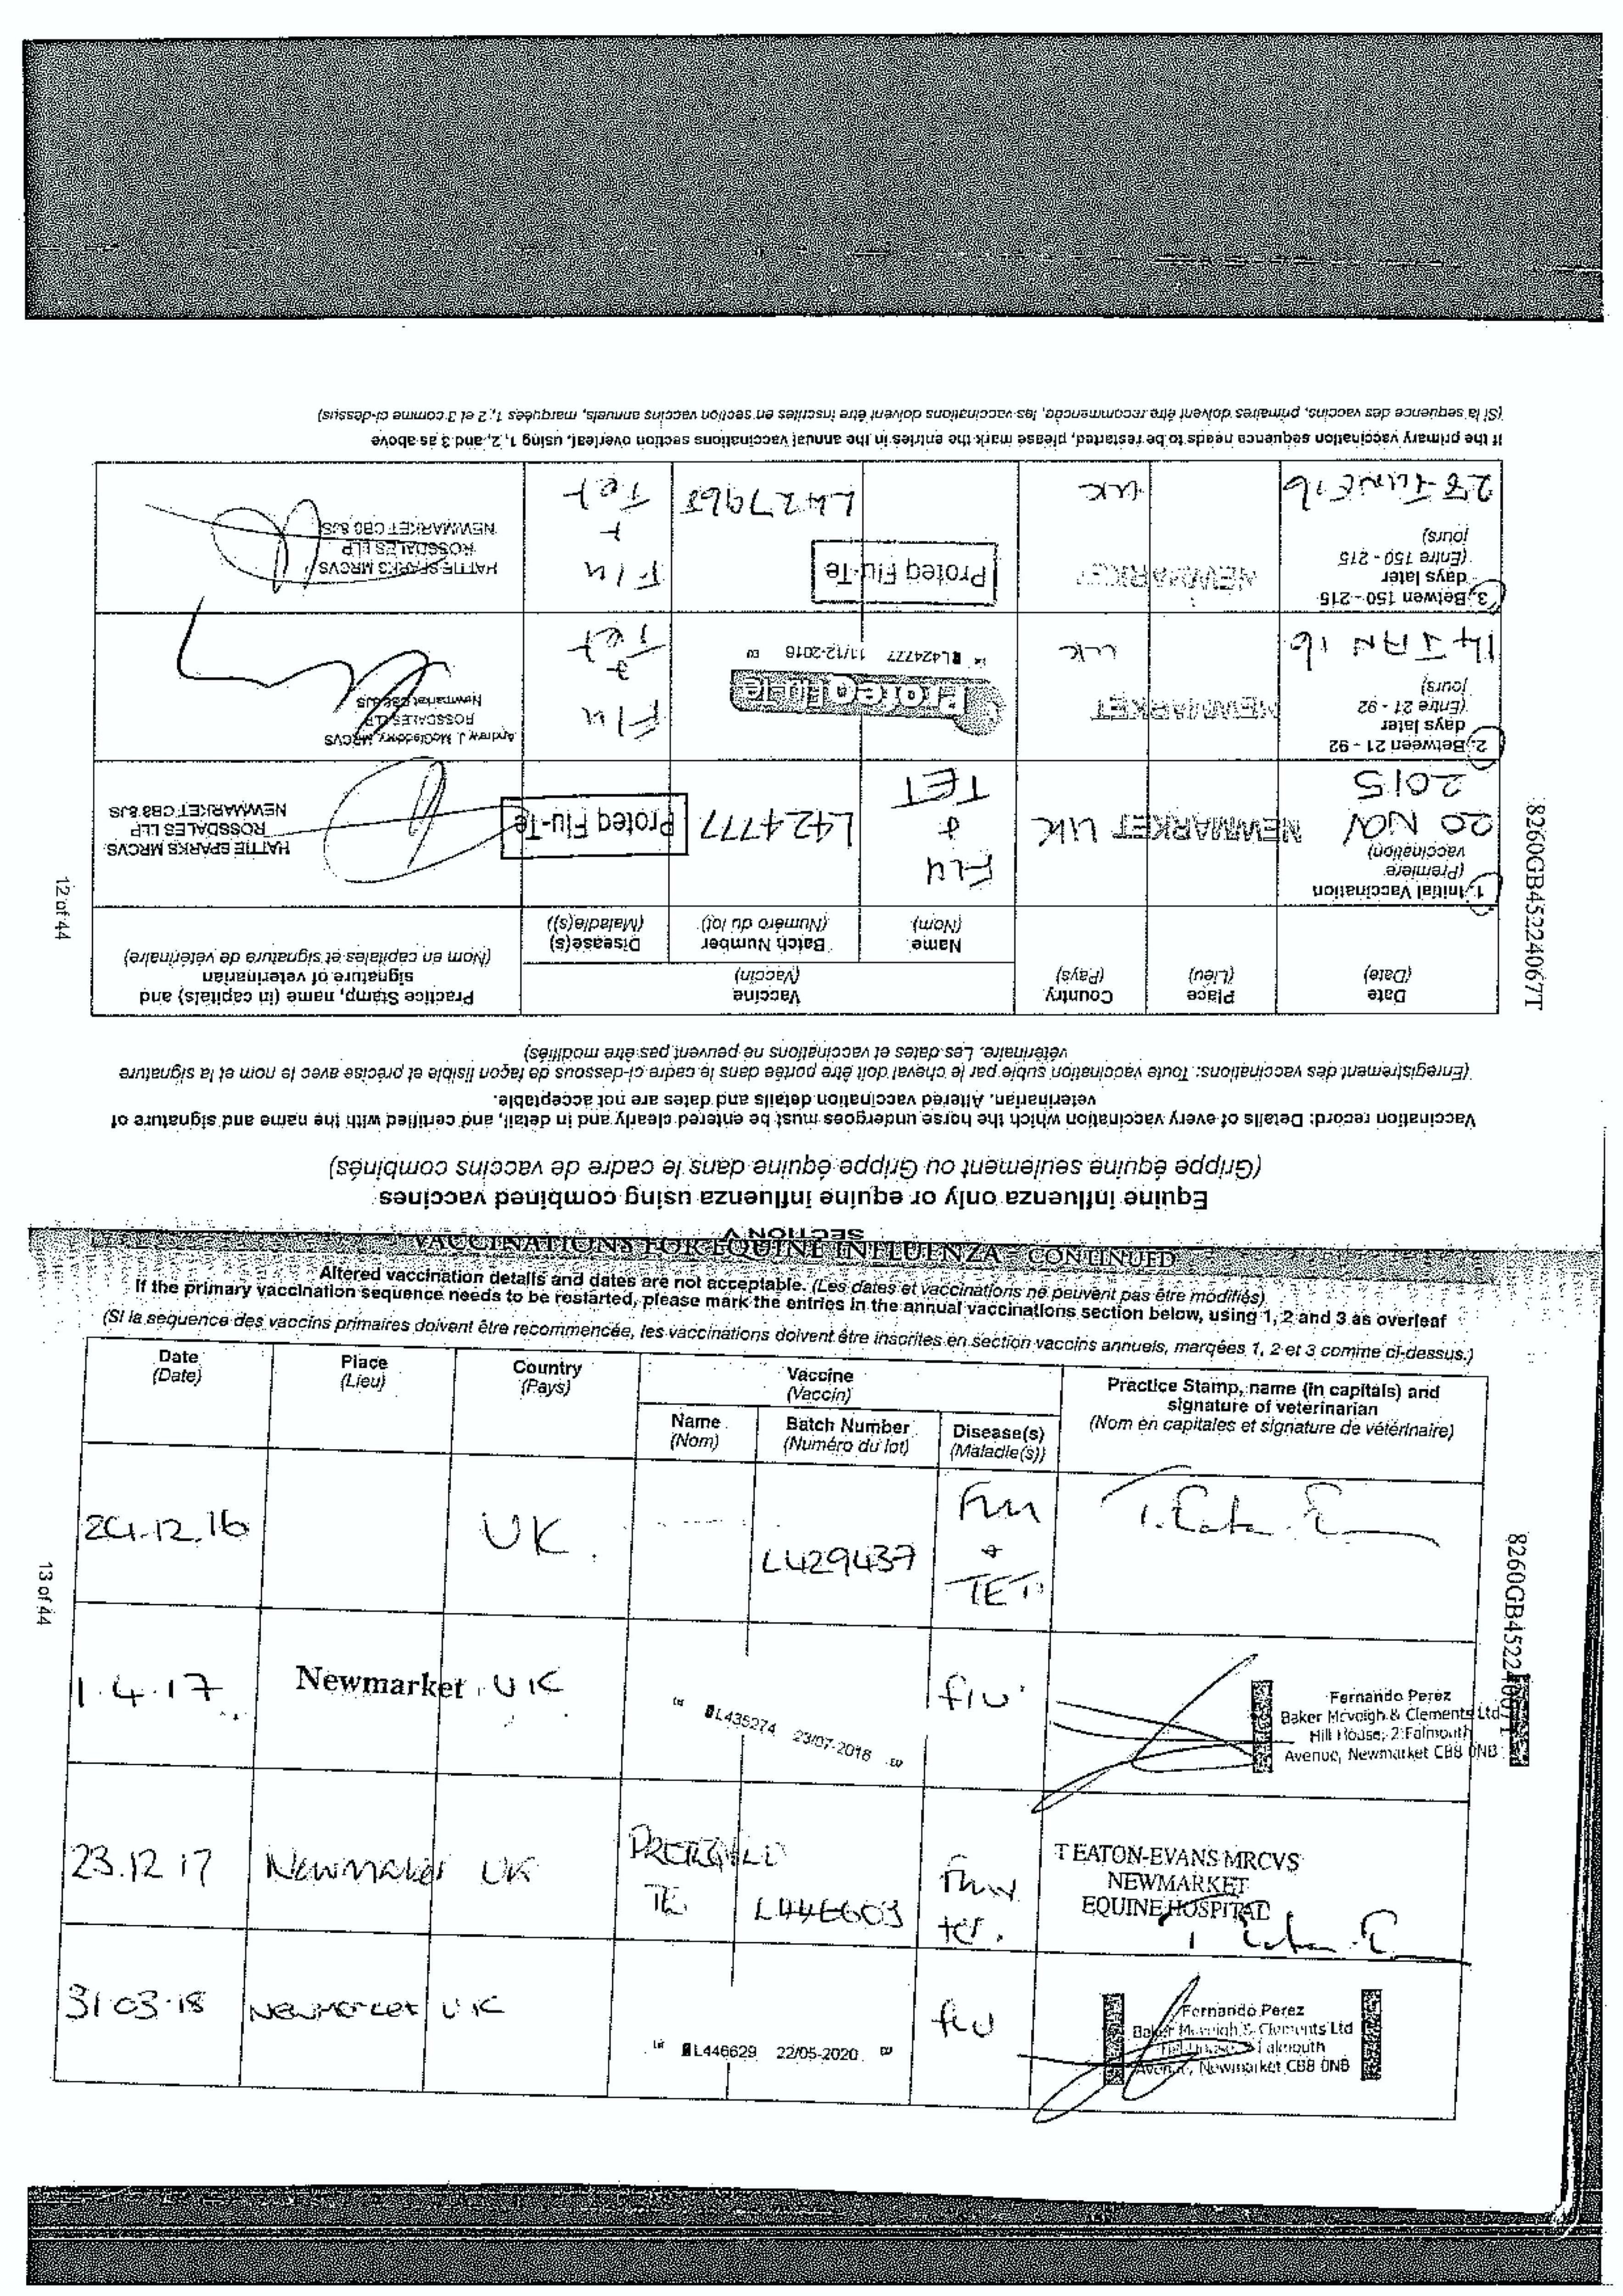 SECTION V
Equine influenza only or equine influenza using combined vaccines
(Grippe équine seulement ou Grippe équine dans le cadre de vaccins combinés)
Vaccination record: Details of every vaccination which the horse undergoes must be entered clearly and in detail, and certified with the name and signature of
veterinarian. Altered vaccination details and dates are not acceptable.
(Enregistrement des vaccinations: Toute vaccination subie par le cheval doit être portée dans le cadre ci-dessous de façon lisible et précise avec le nom et la signature
vétérinaire. Les dates et vaccinations ne peuvent pas être modifiés)
8260GB45224067T
12 of 44
Date
(Date)
Place
(Lieu)
Country
(Pays)
Vaccine
(Vaccin)
Name
(Nom)
Batch Number
(Numéro du lot)
Disease(s)
(Maladie(s))
Practice Stamp, name (in capitals) and
signature of veterinarian
(Nom en capitales et signature de vétérinaire)
1. Initial Vaccination
(Première
vaccination)
20 NOV
2015
NEWMARKET UK
FLU
&
TET
L424777
Proteq Flu-Te
HATTIE SPARKS MRCVS
ROSSDALES LLP
NEWMARKET CB8 8JS
2. Between 21 - 92
days later
(Entre 21 - 92
jours)
14 JAN 16
NEWMARKET
UK
ProteqFlu-Te
L424777 11/12-2016 EU
Flu
&
Tet
Andrew J. McGladdery MRCVS
ROSSDALES LLP
Newmarket CB8 8JS
3. Betwen 150 - 215
days later
(Entre 150 - 215
jours)
28 JUNE 16
NEWMARKET
UK
Proteq Flu-Te
L427968
Flu
+
Tet
HATTIE SPARKS MRCVS
ROSSDALES LLP
NEWMARKET CB8 8JS
If the primary vaccination sequence needs to be restarted, please mark the entries in the annual vaccinations section overleaf, using 1, 2, and 3 as above
(Si la sequence des vaccins, primaires doivent être recommencée, les vaccinations doivent être inscrites en section vaccins annuels, marquées 1, 2 et 3 comme ci-dessus)
VACCINATIONS FOR EQUINE INFLUENZA - CONTINUED
Altered vaccination details and dates are not acceptable. (Les dates et vaccinations ne peuvent pas être modifiés)
If the primary vaccination sequence needs to be restarted, please mark the entries in the annual vaccinations section below, using 1, 2 and 3 as overleaf
(Si la sequence des vaccins primaires doivent être recommencée, les vaccinations doivent être inscrites en section vaccins annuels, marqées 1, 2 et 3 comme ci-dessus.)
Date
(Date)
Place
(Lieu)
Country
(Pays)
Vaccine
(Vaccin)
Name
(Nom)
Batch Number
(Numéro du lot)
Disease(s)
(Maladie(s))
Practice Stamp, name (in capitals) and
signature of veterinarian
(Nom en capitales et signature de vétérinaire)
24.12.16
UK.
L429437
Flu
+
TET
1.4.17
Newmarket UK
L435274 23/07-2018 EU
flu
Fernando Perez
Baker Mcveigh & Clements Ltd
Hill House, 2 Falmouth
Avenue, Newmarket CB8 0NB
23.12 17
Newmarket UK
TE
Flu
tet.
T EATON-EVANS MRCVS
NEWMARKET
EQUINE HOSPITAL
31.03.18
Newmarket UK
L446629 22/05-2020 EU
flu
Fernando Perez
Baker Mcveigh & Clements Ltd
Hill House, 2 Falmouth
Avenue, Newmarket CB8 0NB
13 of 44